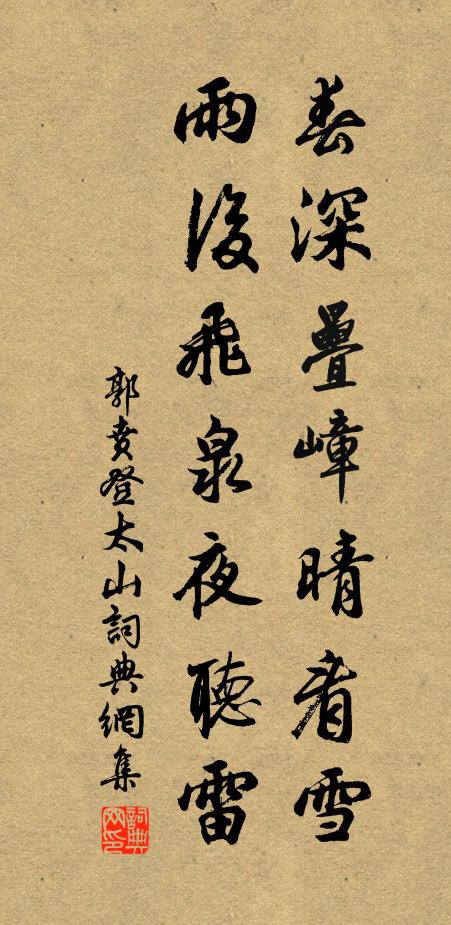 春深疊嶂晴看雪
雨後飛泉夜聽雷
郭賁登太山詞典網集
詞典网印